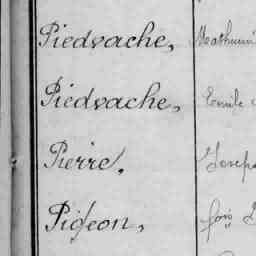 Piedvache, Mathurin
Piedvache, Emile
Pierre, Joseph
Pigeon,